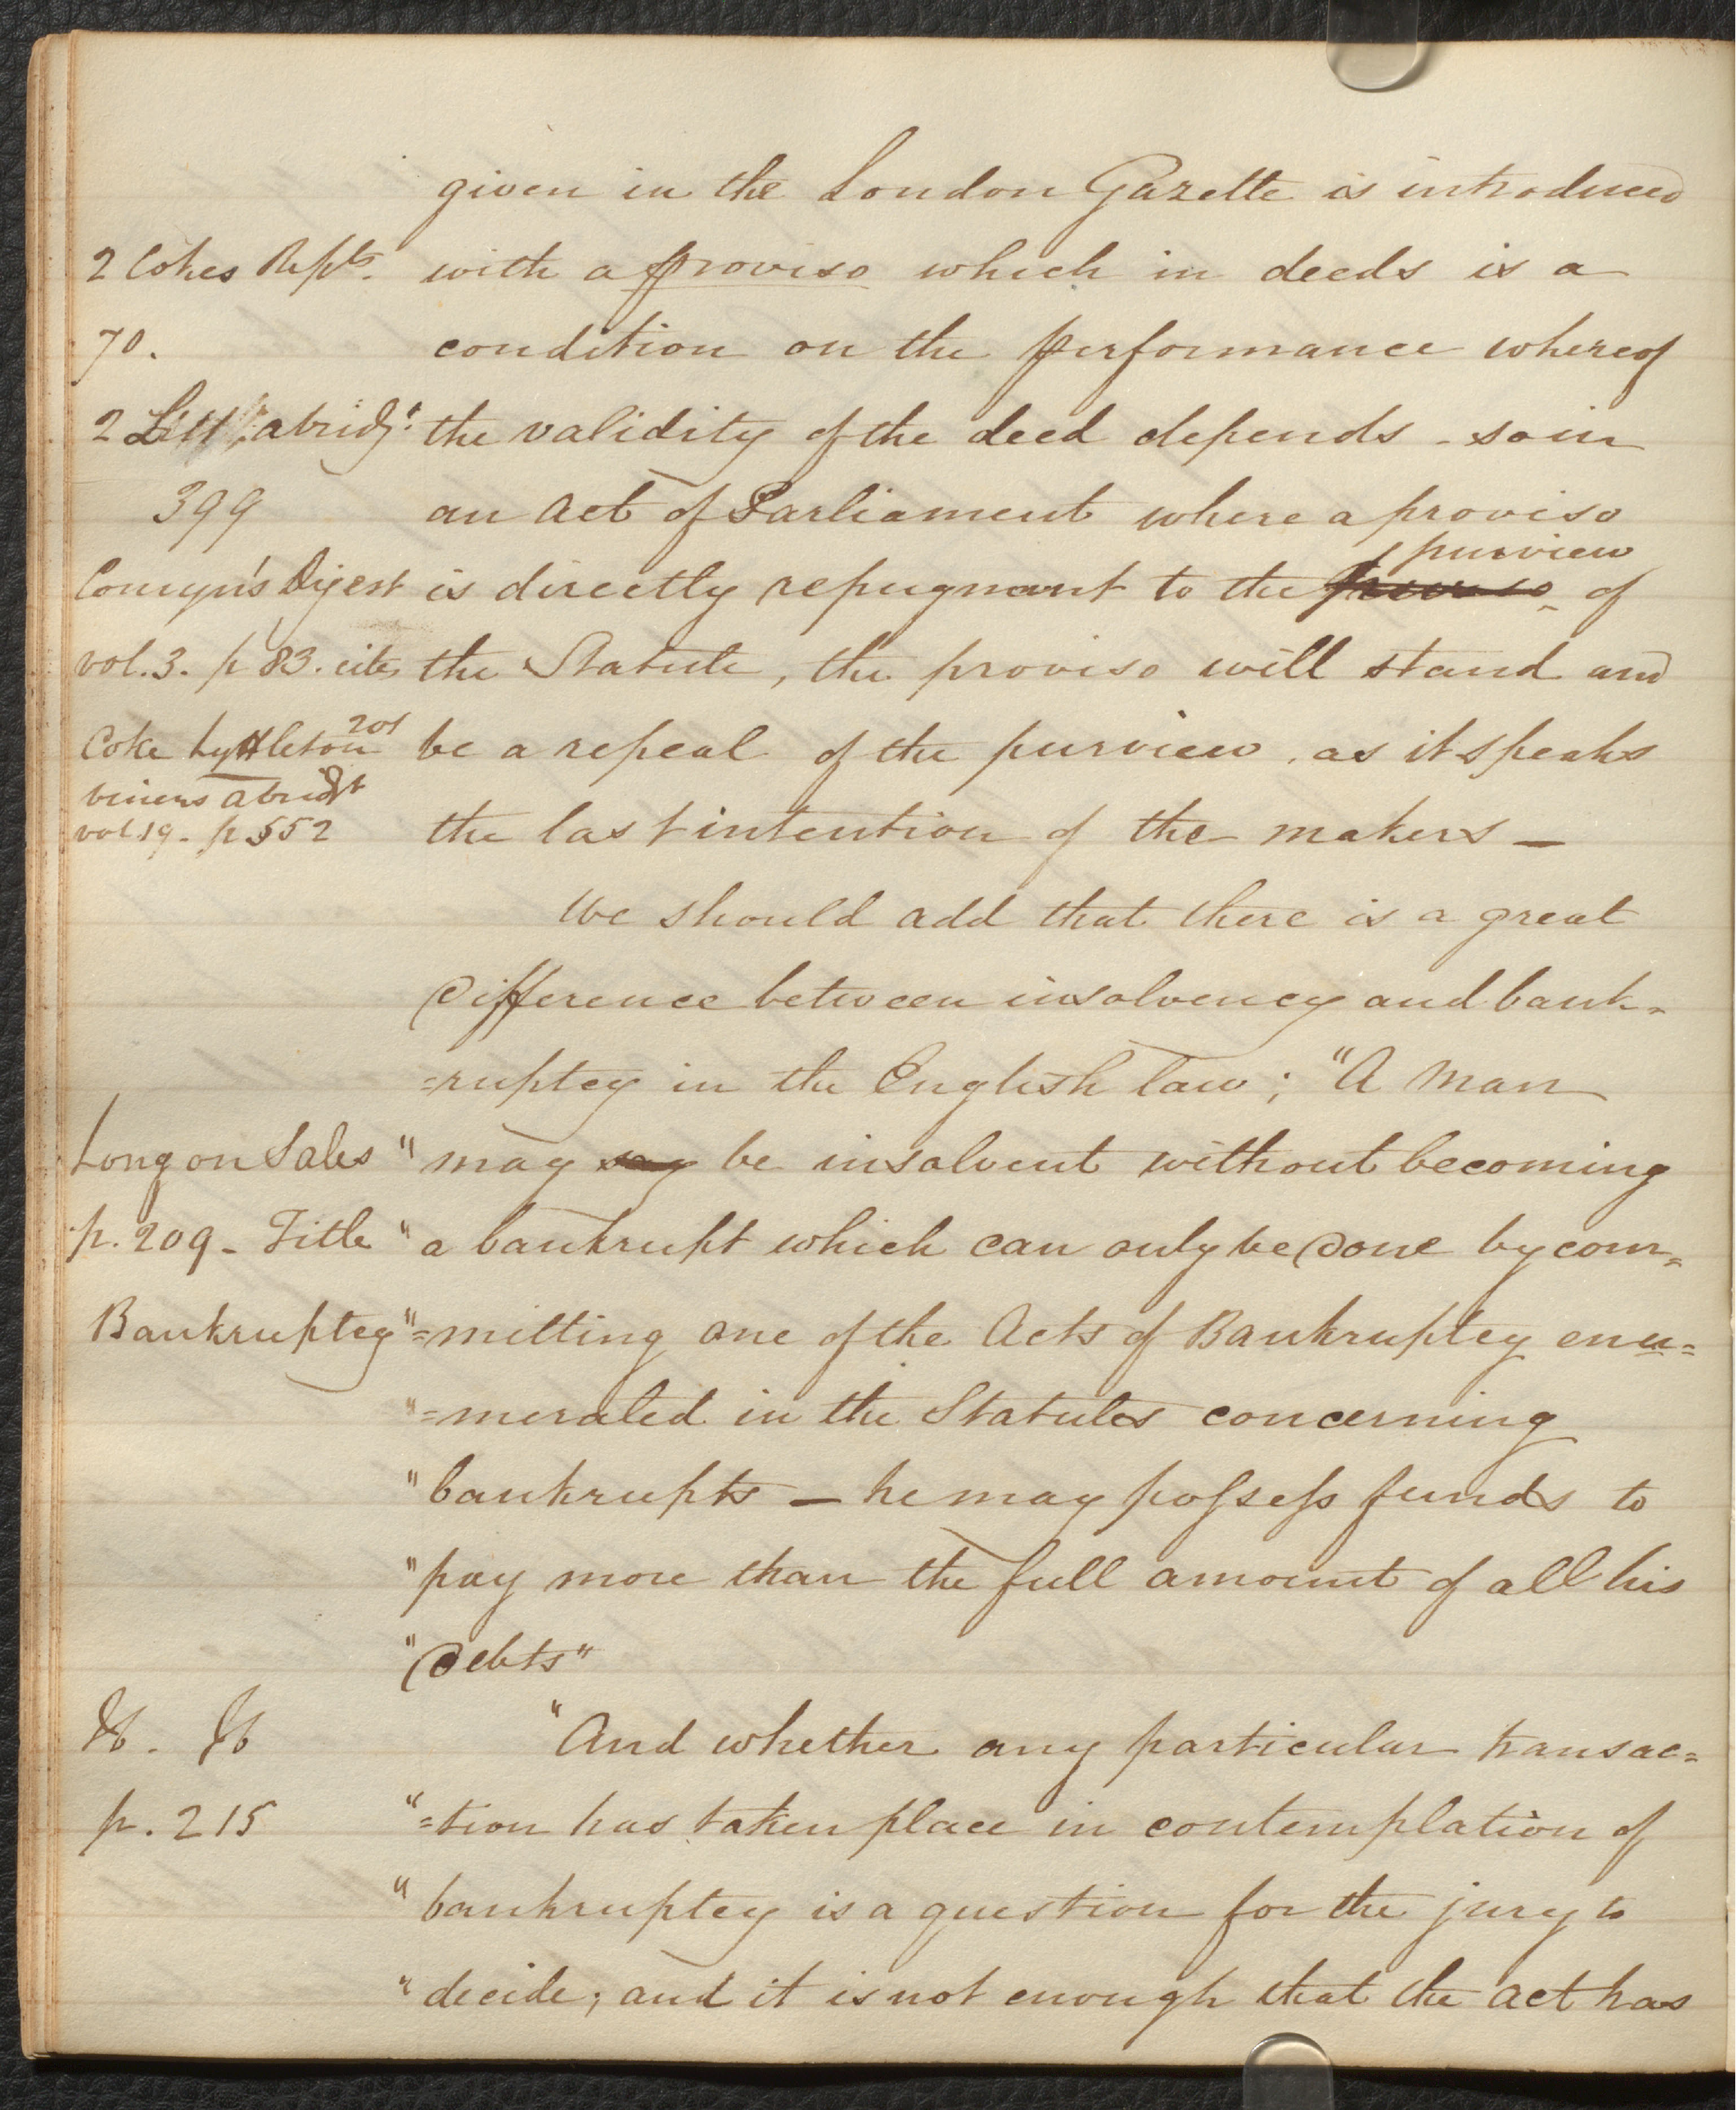 given in the London Gazette is introduced
2 Cokes Repts. with a proviso which in deeds is a
70. condition on the performance whereof
2 Litt abridgt. the validity of the deed depends - so in
399 an Act of Parliament where a proviso
purview
Comyn's Digest is directly repugnant to the proviso of
vol. 3. p 83. cites the Statute, the proviso will stand and
201
Coke Lyttleton be a repeal of the purview, as it speaks
viners abridgt
vol 19. p 552 the last intention of the makers —
We should add that there is a great
Difference between insolvency and bank=
=ruptcy in the English law; "A man
Long on Sales "may say be insolvent without becoming
p. 209 - Title "a bankrupt which can only be Done by com=
Bankruptcy "=mitting one of the Acts of Bankruptcy enu=
"=merated in the Statutes concerning
"bankrupts — he may possess funds to
"pay more than the full amount of all his
"Debts"
"And whether any particular transac=
p. 215 "=tion has taken place in contemplation of
"bankruptcy is a question for the jury to
"decide; and it is not enough that the act has